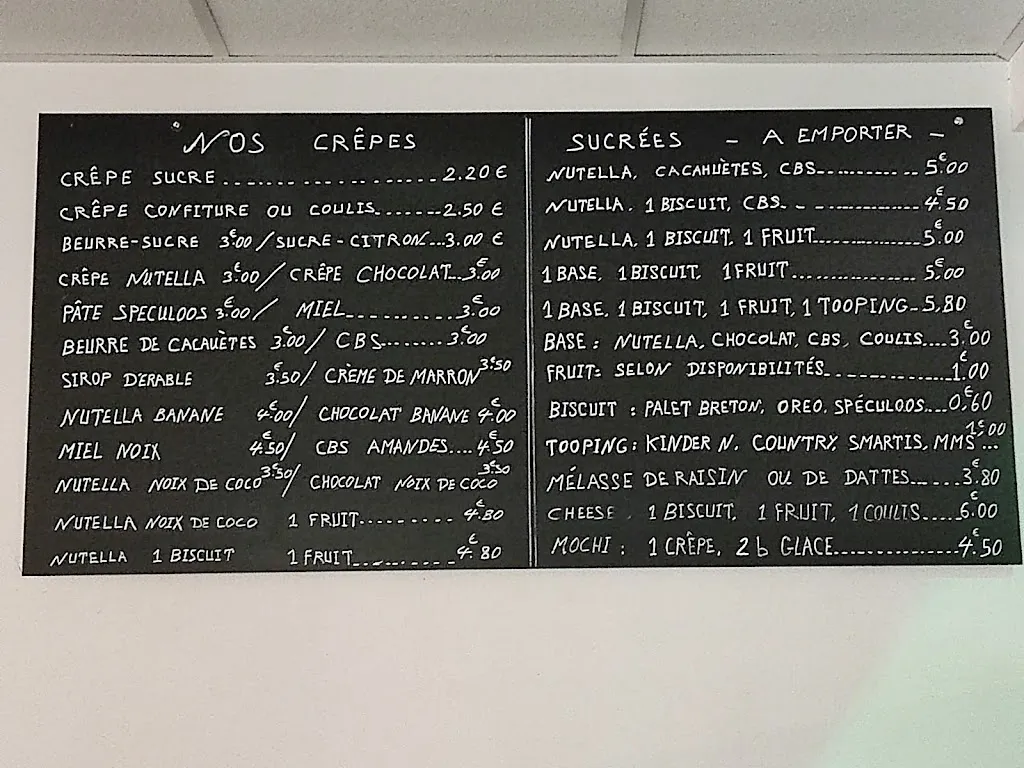 NOS CRÊPES
CRÊPE SUCRE......................2.20 €
CRÊPE CONFITURE OU COULIS.......2.50 €
BEURRE-SUCRE 3€00/SUCRE-CITRON...3.00 €
CRÊPE NUTELLA 3€00/CRÊPE CHOCOLAT...3€00
PÂTE SPECULOOS 3€00/ MIEL............3€00
BEURRE DE CACAUÈTES 3€00/ CBS........3€00
SIROP D'ERABLE 3€50/ CRÈME DE MARRON 3€50
NUTELLA BANANE 4€00/ CHOCOLAT BANANE 4€00
MIEL NOIX 4€50/ CBS AMANDES....4€50
NUTELLA NOIX DE COCO 3€50/ CHOCOLAT NOIX DE COCO 3€50
NUTELLA NOIX DE COCO 1 FRUIT.........4€80
NUTELLA 1 BISCUIT 1 FRUIT...........4€80
SUCRÉES - A EMPORTER -
NUTELLA, CACAHUÈTES, CBS............5€00
NUTELLA, 1 BISCUIT, CBS..............4€50
NUTELLA, 1 BISCUIT, 1 FRUIT............5€00
1 BASE, 1 BISCUIT, 1 FRUIT..............5€00
1 BASE, 1 BISCUIT, 1 FRUIT, 1 TOOPING-5,80
BASE : NUTELLA, CHOCOLAT, CBS, COULIS...3€00
FRUIT: SELON DISPONIBILITÉS..............1€00
BISCUIT : PALET BRETON, OREO, SPÉCULOOS...0€60
TOOPING: KINDER N. COUNTRY, SMARTIS, MMS...1€00
MÉLASSE DE RAISIN OU DE DATTES......3€80
CHEESE, 1 BISCUIT, 1 FRUIT, 1 COULIS.....6€00
MOCHI : 1 CRÊPE, 2 b GLACE..............4€50